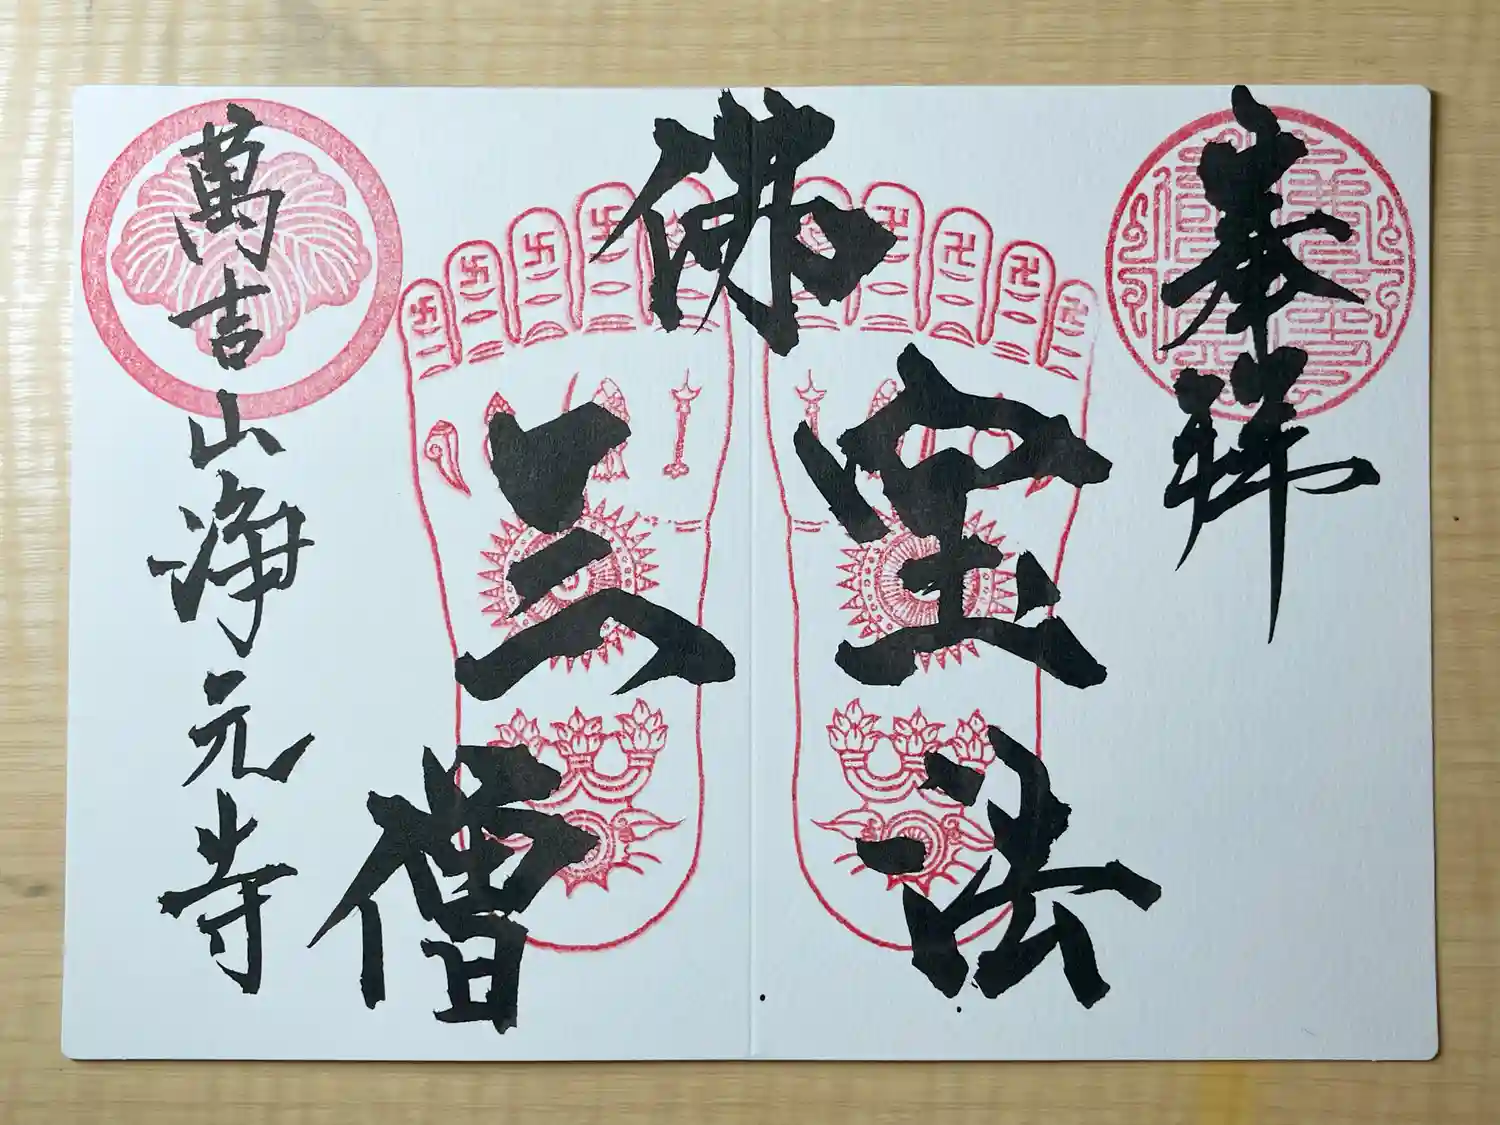 奉拝
佛
三宝
僧法
萬吉山浄元寺